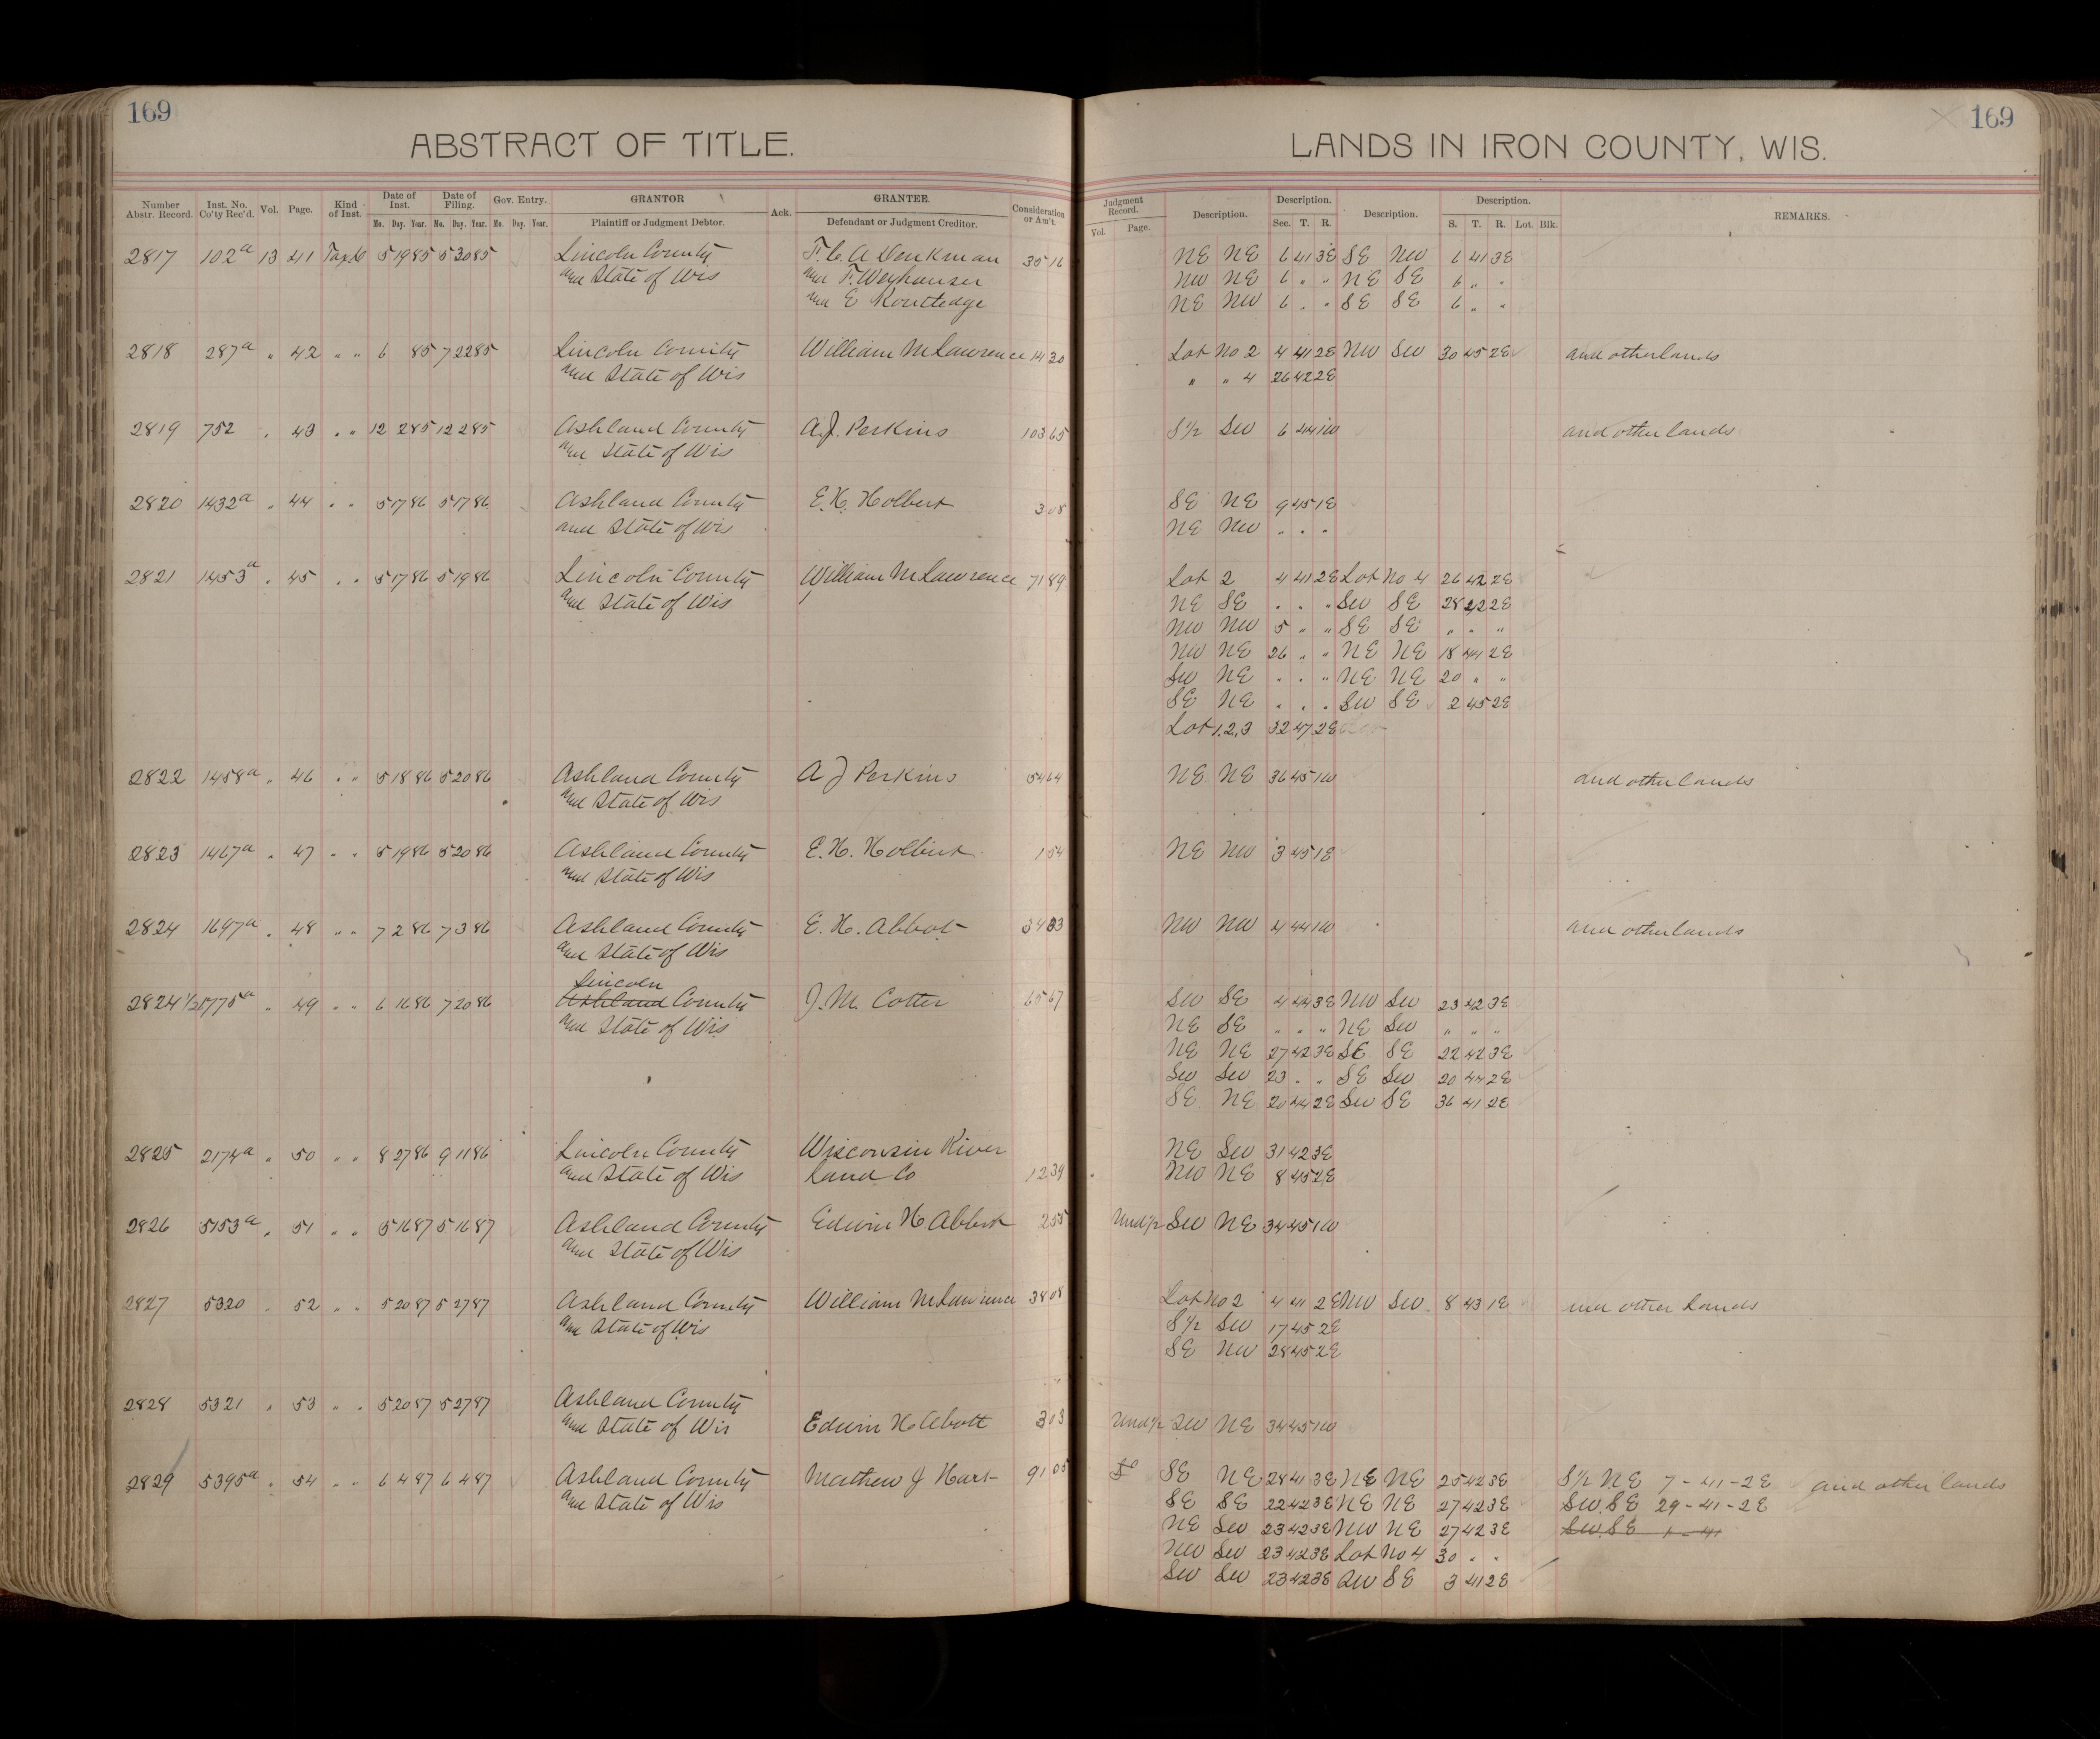 169
169
ABSTRACT OF TITLE.
LANDS IN IRON COUNTY, WIS.
Number Abstr. Record. Inst. No. Co'ty Rec'd. Vol. Page. Kind of Inst. Date of Inst. Date of Filing. Gov. Entry. GRANTOR Ack. GRANTEE. Consideration or Am't. Judgment Record. Description. Description. Description. Description. REMARKS.
Mo. Day. Year. Mo. Day. Year. Mo. Day. Year. Plaintiff or Judgment Debtor. Defendant or Judgment Creditor. Vol. Page. Sec. T. R. S. T. R. Lot. Blk.
2817 102a 13 41 Tax D 5 19 85 5 30 85 Lincoln County F. C. A Denkman 30 16 NE NE 6 41 3E SE NW 6 41 3E
and State of Wis and F. Weyhauser NW NE 6 " " NE SE 6 " "
and E Routledge NE NW 6 " " SE SE 6 " "
2818 287a " 42 " " 6 85 7 22 85 Lincoln County William M Lawrence 14 20 Lot No 2 4 41 2E NW SW 30 45 2E and other lands
and State of Wis " " 4 26 42 2E
2819 752 " 43 " " 12 2 85 12 2 85 Ashland County A. J. Perkins 103 65 S½ SW 6 44 1W and other lands
and State of Wis
2820 1432a " 44 " " 5 17 86 5 17 86 Ashland County E. H. Holbert 3 08 SE NE 9 45 1E
and State of Wis NE NW " " "
2821 1453a " 45 " " 5 17 86 5 19 86 Lincoln County William M Lawrence 71 89 Lot 2 4 41 2E Lot No 4 26 42 2E
and State of Wis NE SE " " " SW SE 28 42 2E
NW NW 5 " " SE SE " " "
NW NE 26 " " NE NE 18 44 2E
SW NE " " " NE NE 20 " "
SE NE " " " SW SE 2 45 2E
Lot 1, 2, 3 32 47 2E
2822 1458a " 46 " " 5 18 86 5 20 86 Ashland County A J Perkins 54 64 NE NE 36 45 1W and other lands
and State of Wis
2823 1467a " 47 " " 5 19 86 5 20 86 Ashland County E. H. Holbert 1 54 NE NW 3 45 1E
and State of Wis
2824 1697a " 48 " " 7 2 86 7 3 86 Ashland County E. H. Abbot 34 83 NW NW 4 44 1W and other lands
and State of Wis
Lincoln
2824 1/2 1775a " 49 " " 6 16 86 7 20 86 Ashland County J. M. Cotter 65 67 SW SE 4 44 3E NW SW 23 42 3E
and State of Wis NE SE " " " NE SW " " "
NE NE 27 42 3E SE SE 22 42 3E
SW SW 23 " " SE SW 20 44 2E
SE NE 20 44 2E SW SE 36 41 2E
2825 2174a " 50 " " 8 27 86 9 11 86 Lincoln County Wisconsin River NE SW 31 42 3E
and State of Wis Land Co 12 39 NW NE 8 45 2E
2826 5153a " 51 " " 5 16 87 5 16 87 Ashland County Edwin H Abbot 2 55 Und½ SW NE 34 45 1W
and State of Wis
2827 5320 " 52 " " 5 20 87 5 27 87 Ashland County William M Lawrence 38 08 Lot No 2 4 41 2E NW SW 8 43 1E and other lands
and State of Wis S½ SW 17 45 2E
SE NW 28 45 2E
2828 5321 " 53 " " 5 20 87 5 27 87 Ashland County
and State of Wis Edwin H Abott 3 03 Und½ SW NE 34 45 1W
2829 5395a " 54 " " 6 4 87 6 4 87 Ashland County Matthew J Hart 91 05 SE NE 28 41 3E NE NE 25 42 3E S½ NE 7-41-2E and other lands
and State of Wis SE SE 22 42 3E NE NE 27 42 3E SW. SE 29-41-2E
NE SW 23 42 3E NW NE 27 42 3E SW. SE 1-41
NW SW 23 42 3E Lot No 4 30 " "
SW SW 23 42 3E SW SE 3 41 2E